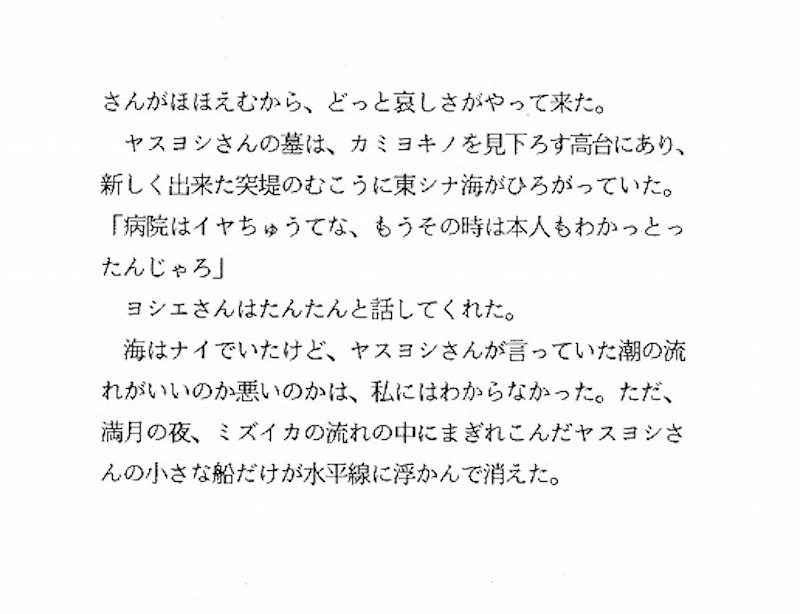 さんがほほえむから、どっと哀しさがやって来た。
　ヤスヨシさんの墓は、カミヨキノを見下ろす高台にあり、
新しく出来た突堤のむこうに東シナ海がひろがっていた。
「病院はイヤちゅうてな、もうその時は本人もわかっとっ
たんじゃろ」
　ヨシエさんはたんたんと話してくれた。
　海はナイでいたけど、ヤスヨシさんが言っていた潮の流
れがいいのか悪いのかは、私にはわからなかった。ただ、
満月の夜、ミズイカの流れの中にまぎれこんだヤスヨシさ
んの小さな船だけが水平線に浮かんで消えた。